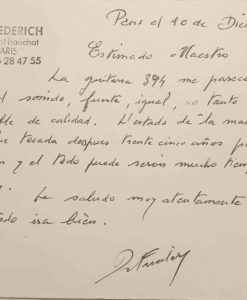 EDERICH
t Gauchat
PARIS
28 47 55
Paris el 10 de Dic
Estimado Maestro
La guitarra 394 me parece
el sonido, fuerte, igual, no tanto
ble de calidad. L'estado de la ma
tocada despues trente cinco años p
y el todo puede servir mucho tiem
Le saludo muy atentamente
todo ira bien.